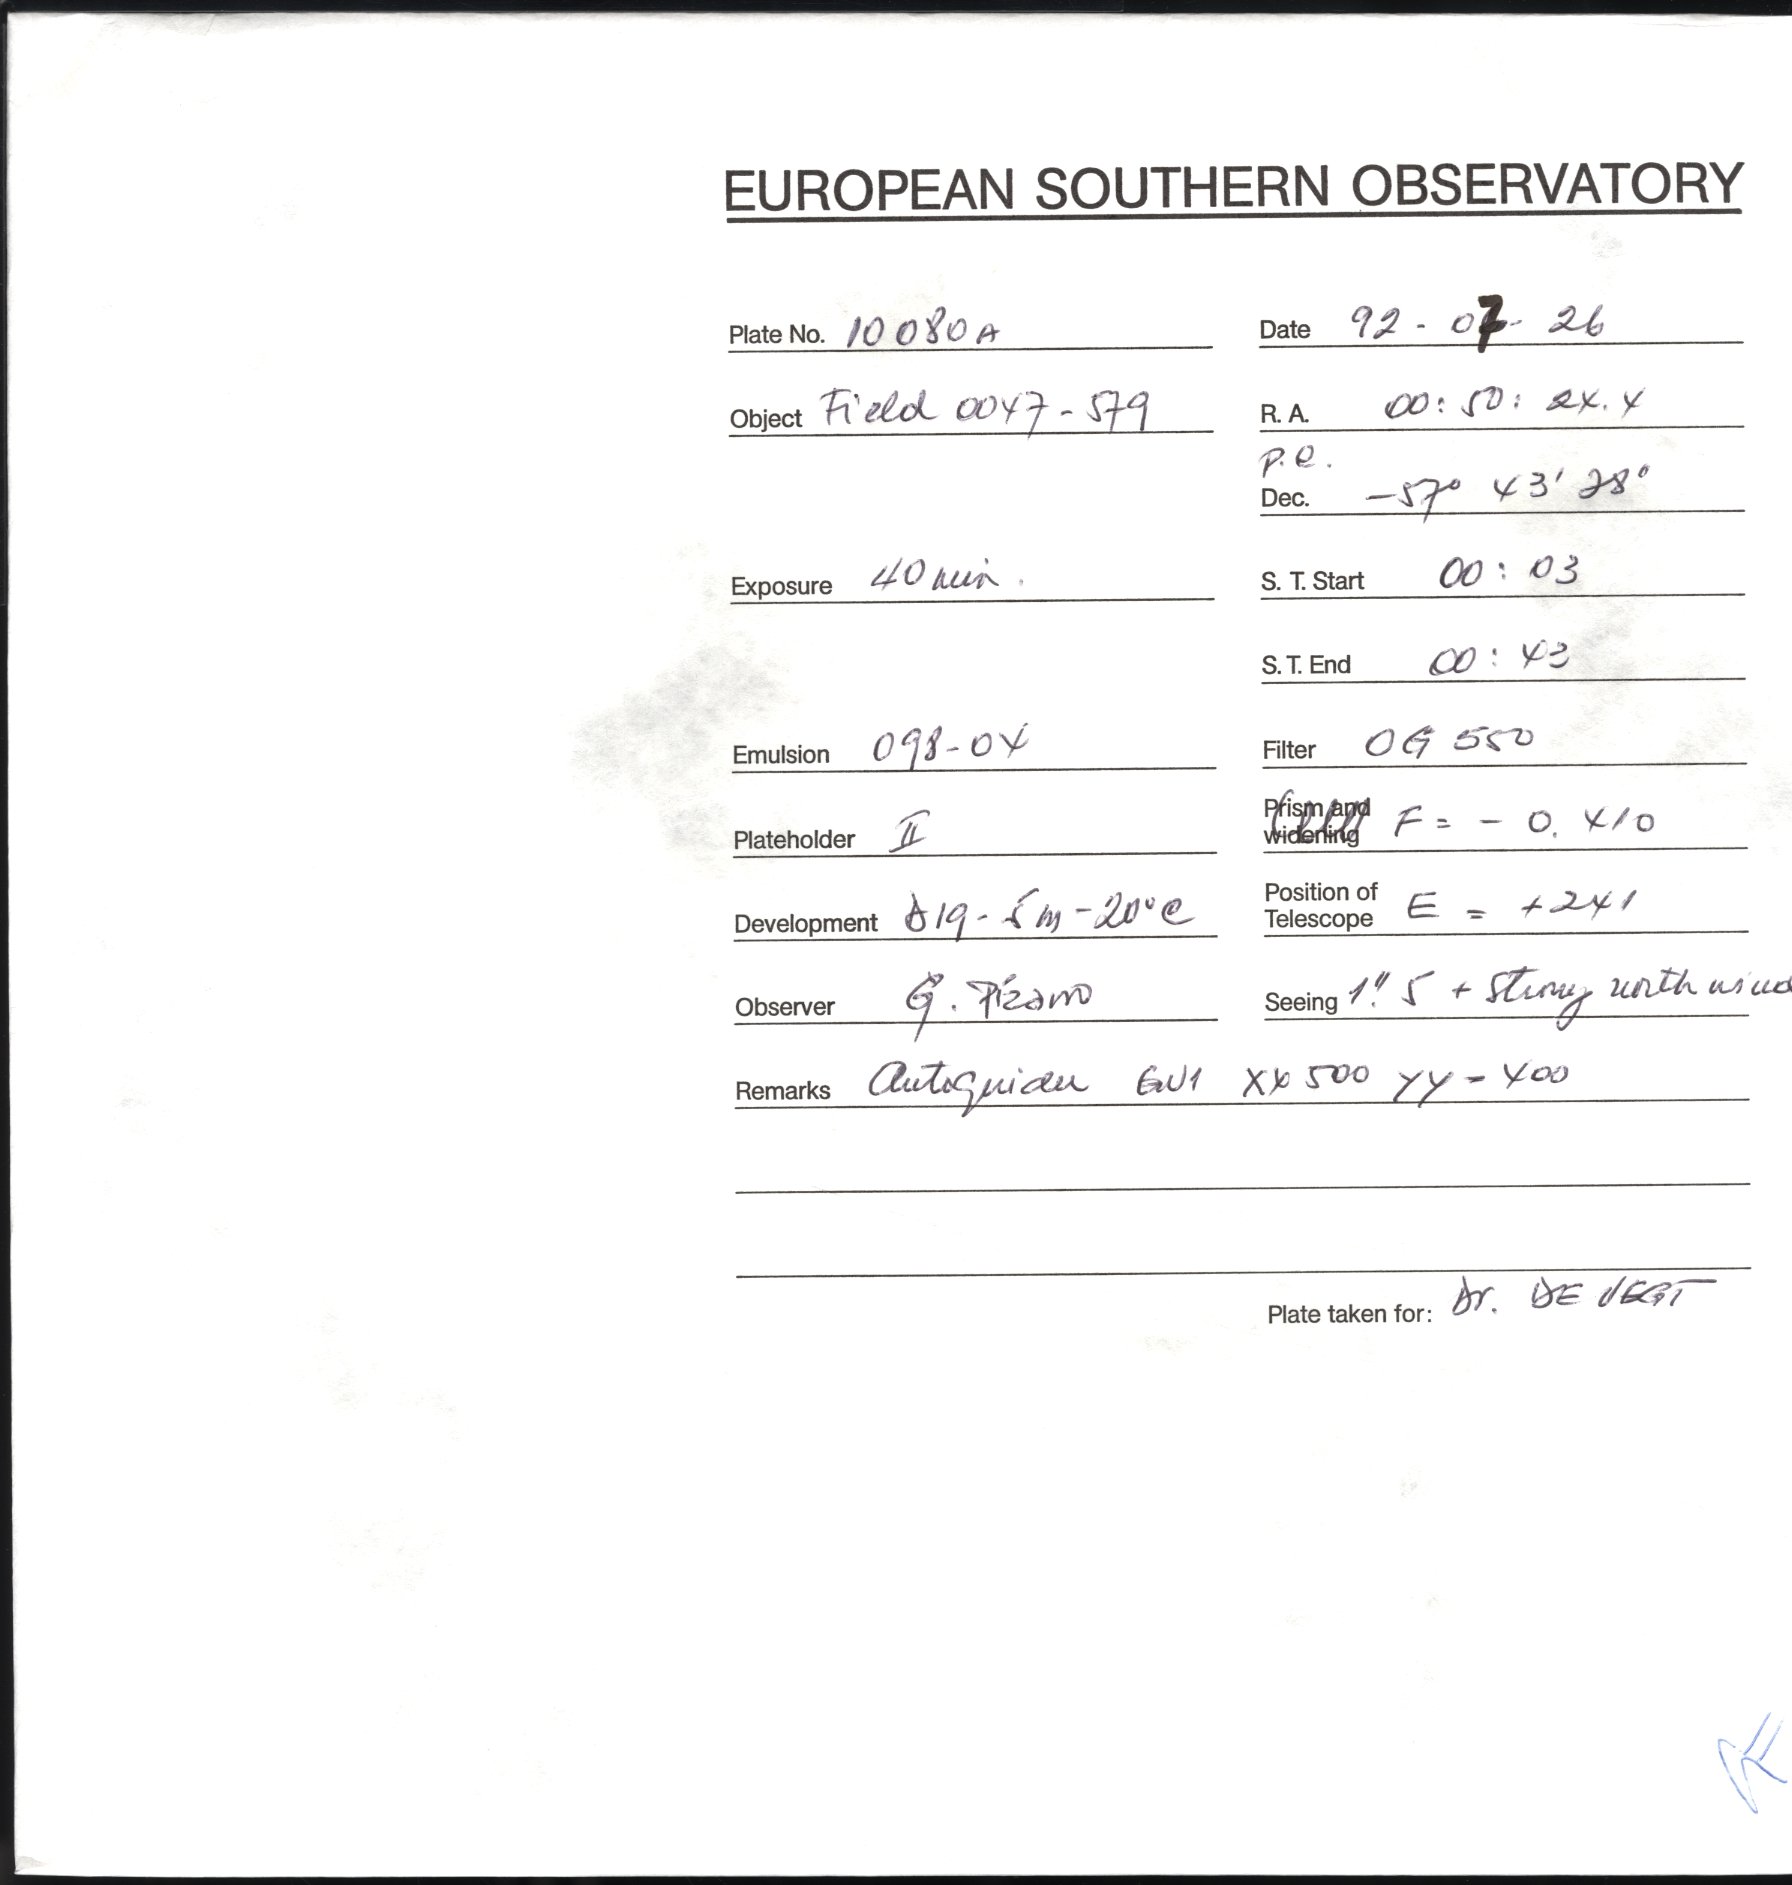 EUROPEAN SOUTHERN OBSERVATORY
Plate No. 10080A Date 92-07-26
Object Field 0047-579 R. A. 00:50:24.4
p.e.
Dec. -57° 43' 28"
Exposure 40 min. S. T. Start 00:03
S. T. End 00:43
Emulsion 098-04 Filter OG 550
Plateholder II Prism and widening F = - 0.410
Development D19-5m-20°C Position of Telescope E = +241
Observer G. Pizarro Seeing 1".5 + Strong north wind
Remarks Autoguider XX 500 YY - 400
Plate taken for: Dr. DE VEGT